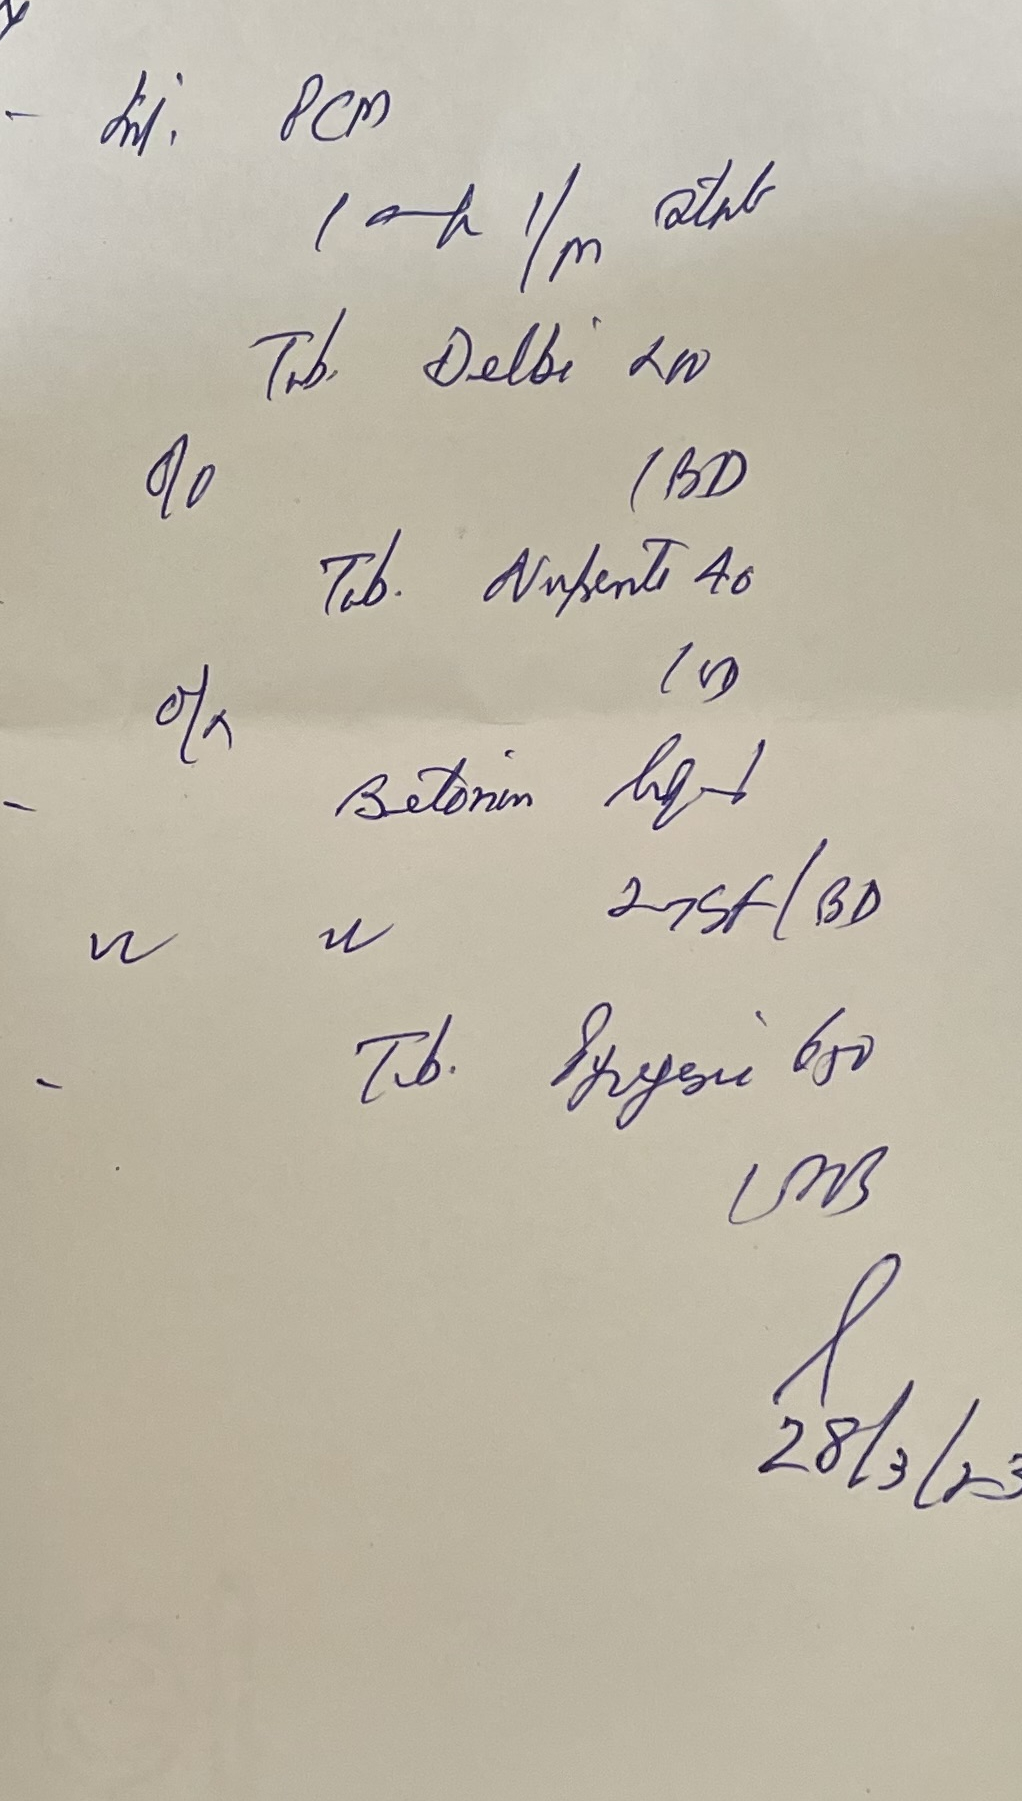 Inj. PCM
1 amp I/m stat
Tab. Delbi 200
O/O 1 BD
Tab. Nupenti 40
O/A 1 OD
Betonin liquid
2 TSF/BD
Tab. Pyregesic 650
28/3/23